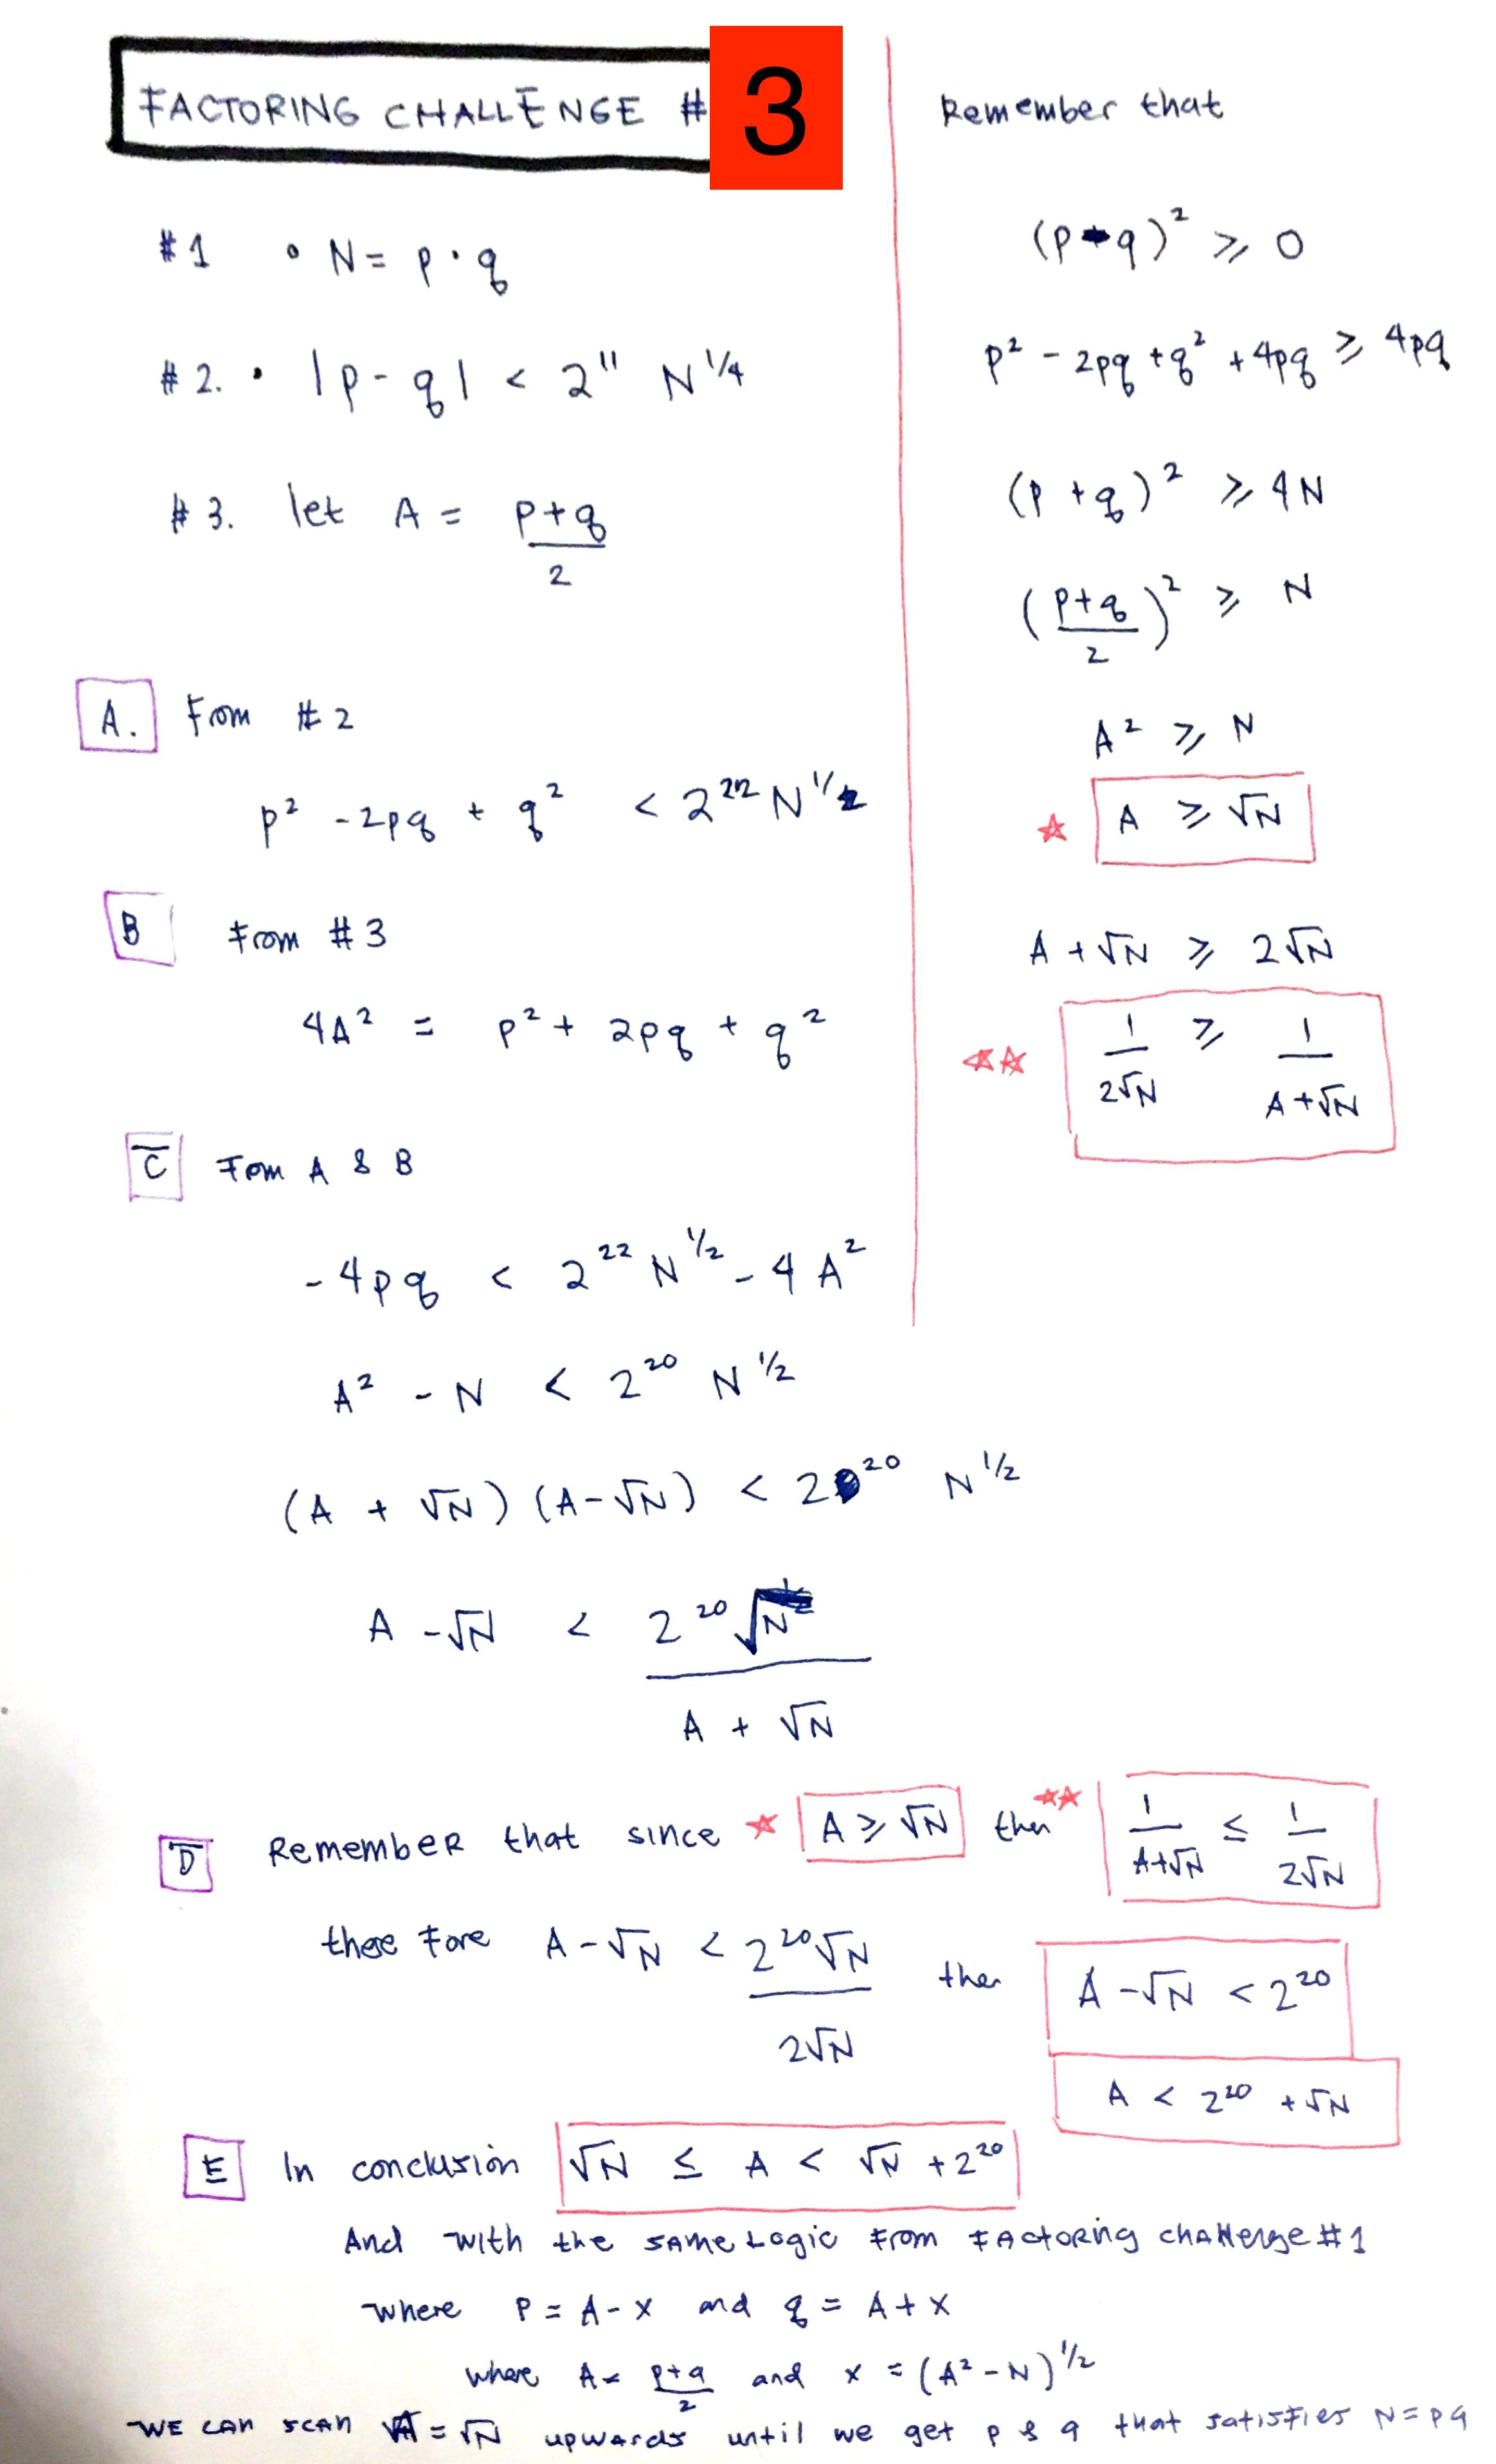 FACTORING CHALLENGE # 3
#1 • N = p · q
#2. • |p - q| < 2^11 N^1/4
#3. let A = (p+q)/2
A. From #2
p² - 2pq + q² < 2^22 N^1/2
B From #3
4A² = p² + 2pq + q²
C From A & B
-4pq < 2^22 N^1/2 - 4A²
A² - N < 2^20 N^1/2
(A + √N) (A - √N) < 2^20 N^1/2
A - √N < 2^20 √N / (A + √N)
Remember that
(p - q)² ≥ 0
p² - 2pq + q² + 4pq ≥ 4pq
(p + q)² ≥ 4N
((p+q)/2)² ≥ N
A² ≥ N
★ A ≥ √N
A + √N ≥ 2√N
★★ 1/(2√N) ≥ 1/(A + √N)
D Remember that since ★ A ≥ √N then ★★ 1/(A+√N) ≤ 1/(2√N)
there fore A - √N < 2^20 √N / (2√N) then A - √N < 2^20
A < 2^20 + √N
E In conclusion √N ≤ A < √N + 2^20
And with the same Logic from FActoring challenge #1
where p = A - x and q = A + x
where A = (p+q)/2 and x = (A² - N)^1/2
WE CAN SCAN A = √N upwards until we get p & q that satisfies N = pq